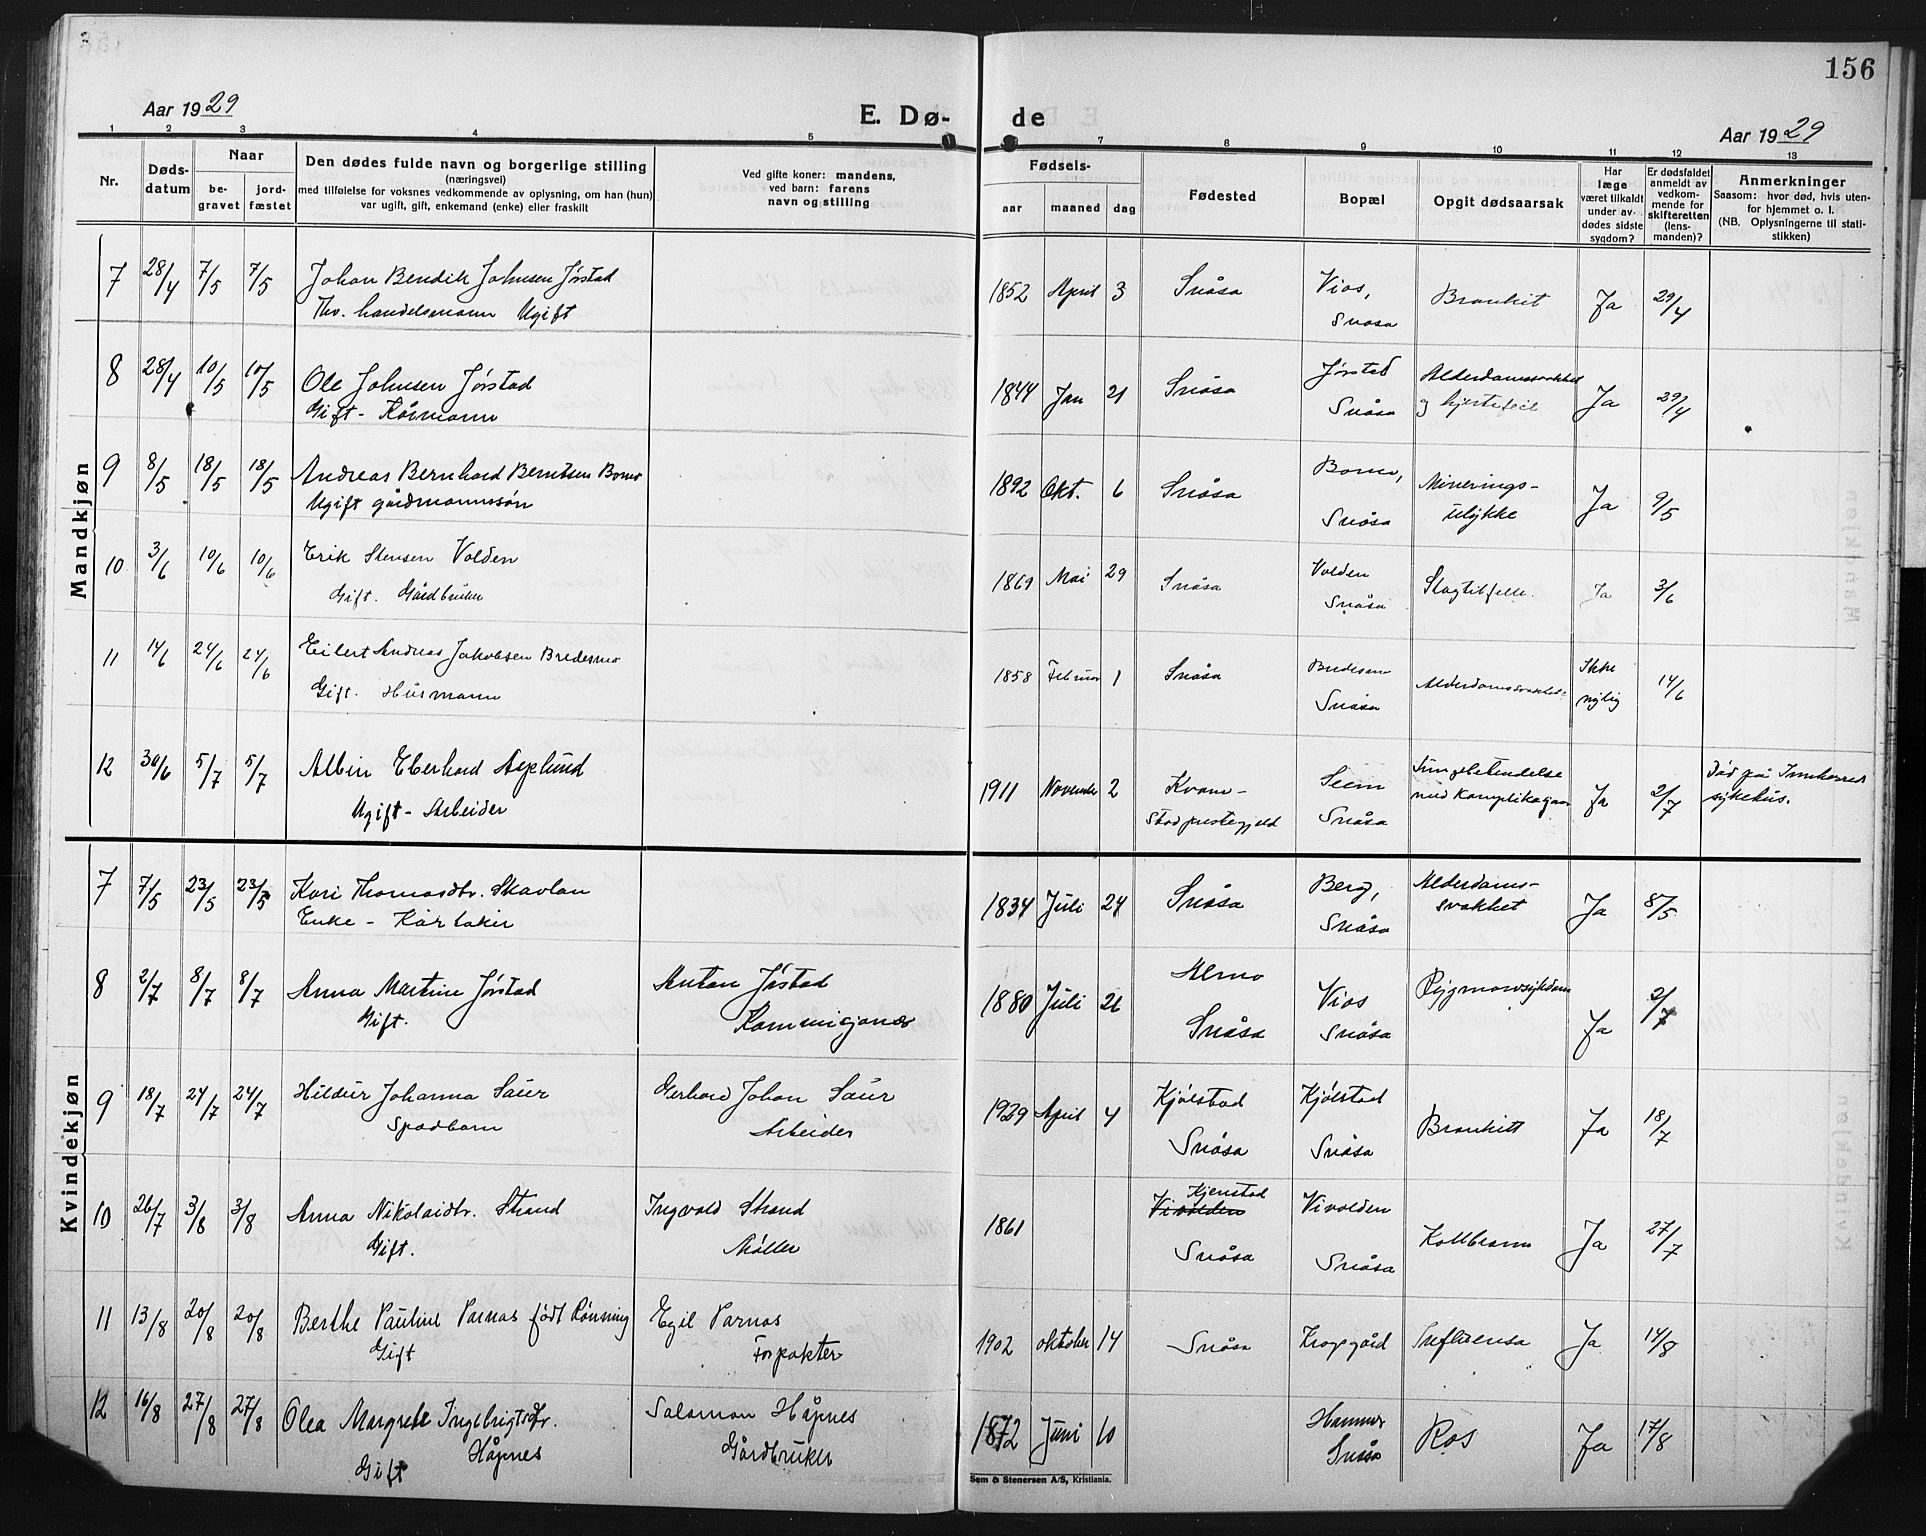 156
Aar 1929
E. Dø- de
Aar 1929
1 2 3 4 5 7 8 9 10 11 12 13
Nr.
Døds-
datum
Naar
be-
gravet
jord-
fæstet
Den dødes fulde navn og borgerlige stilling
(næringsvei)
med tilføielse for voksnes vedkommende av oplysning, om han (hun)
var ugift, gift, enkemand (enke) eller fraskilt
Ved gifte koner: mandens,
ved barn: farens
navn og stilling
Fødsels-
aar maaned dag
Fødested
Bopæl
Opgit dødsaarsak
Har
læge
været tilkaldt
under av-
dødes sidste
sygdom?
Er dødsfaldet
anmeldt av
vedkom-
mende for
skifteretten
(lens-
manden)?
Anmerkninger
Saasom: hvor død, hvis uten-
for hjemmet o. l.
(NB. Oplysningerne til stati-
stikken)
Mandkjøn
7 28/4 7/5 7/5 Johan Bendik Johnsen Jørstad 1852 April 3 Snåsa Vios, Bronkit Ja 29/4
Fhv. handelsmann Ugift Snåsa
8 28/4 10/5 10/5 Ole Johnsen Jørstad 1844 Jan 21 Snåsa Jørstad Alderdomssvakhet Ja 29/4
Gift - Kårmann Snåsa og hjertefeil
9 8/5 18/5 18/5 Andreas Bernhard Berntsen Bomo 1892 Okt. 6 Snåsa Bomo, Minerings- Ja 9/5
Ugift gårdmannssøn Snåsa ulykke
10 3/6 10/6 10/6 Erik Stensen Volden 1869 Mai 29 Snåsa Volden Slagtilfelle. Ja 3/6
Gift. Gårdbruker Snåsa
11 14/6 24/6 24/6 Eilert Andreas Jakobsen Bredesmo 1858 Februar 1 Snåsa Bredesmo Alderdomssvakhet. Ikke 14/6
Gift. Husmann Snåsa nylig
12 30/6 5/7 5/7 Albin Eberhard Asplund 1911 November 2 Kvam - Seem Lungebetendelse Ja 2/7 Død på Innherred
Ugift - Arbeider Stod prestegjeld Snåsa med komplikasjon sykehus.
Kvindekjøn
7 7/5 23/5 23/5 Kari Thomasdtr. Skavlan 1834 Juli 24 Snåsa Berg, Alderdoms- Ja 8/5
Enke - Kårtaker Snåsa svakhet
8 2/7 8/7 8/7 Anna Martine Jørstad Anton Jøstad 1880 Juli 26 Almo Vios Rygmarvsykdom Ja 2/7
Gift. Kommisjonær Snåsa Snåsa
9 18/7 24/7 24/7 Hildur Johanna Saur Gerhard Johan Saur 1929 April 4 Kjølstad Kjølstad Bronkitt Ja 18/7
Spædbarn Arbeider Snåsa Snåsa
10 26/7 3/8 3/8 Anna Nikolaidtr. Strand Ingvald Strand 1861 Kjenstad Vivolden Koldbrann Ja 27/7
Vivolden
Gift. Møller Snåsa Snåsa
11 13/8 20/8 20/8 Berthe Pauline Parnas født Rønning Egil Parnas 1902 oktober 14 Snåsa Krogsgård Influensa Ja 14/8
Gift Forpakter
12 16/8 27/8 27/8 Olea Margrete Ingebrigtsdtr. Salomon Håpnes 1872 Juni 10 Hammer Ros Ja 17/8
Gift Håpnes Gårdbruker Snåsa
Sem & Stenersen A/S, Kristiania.